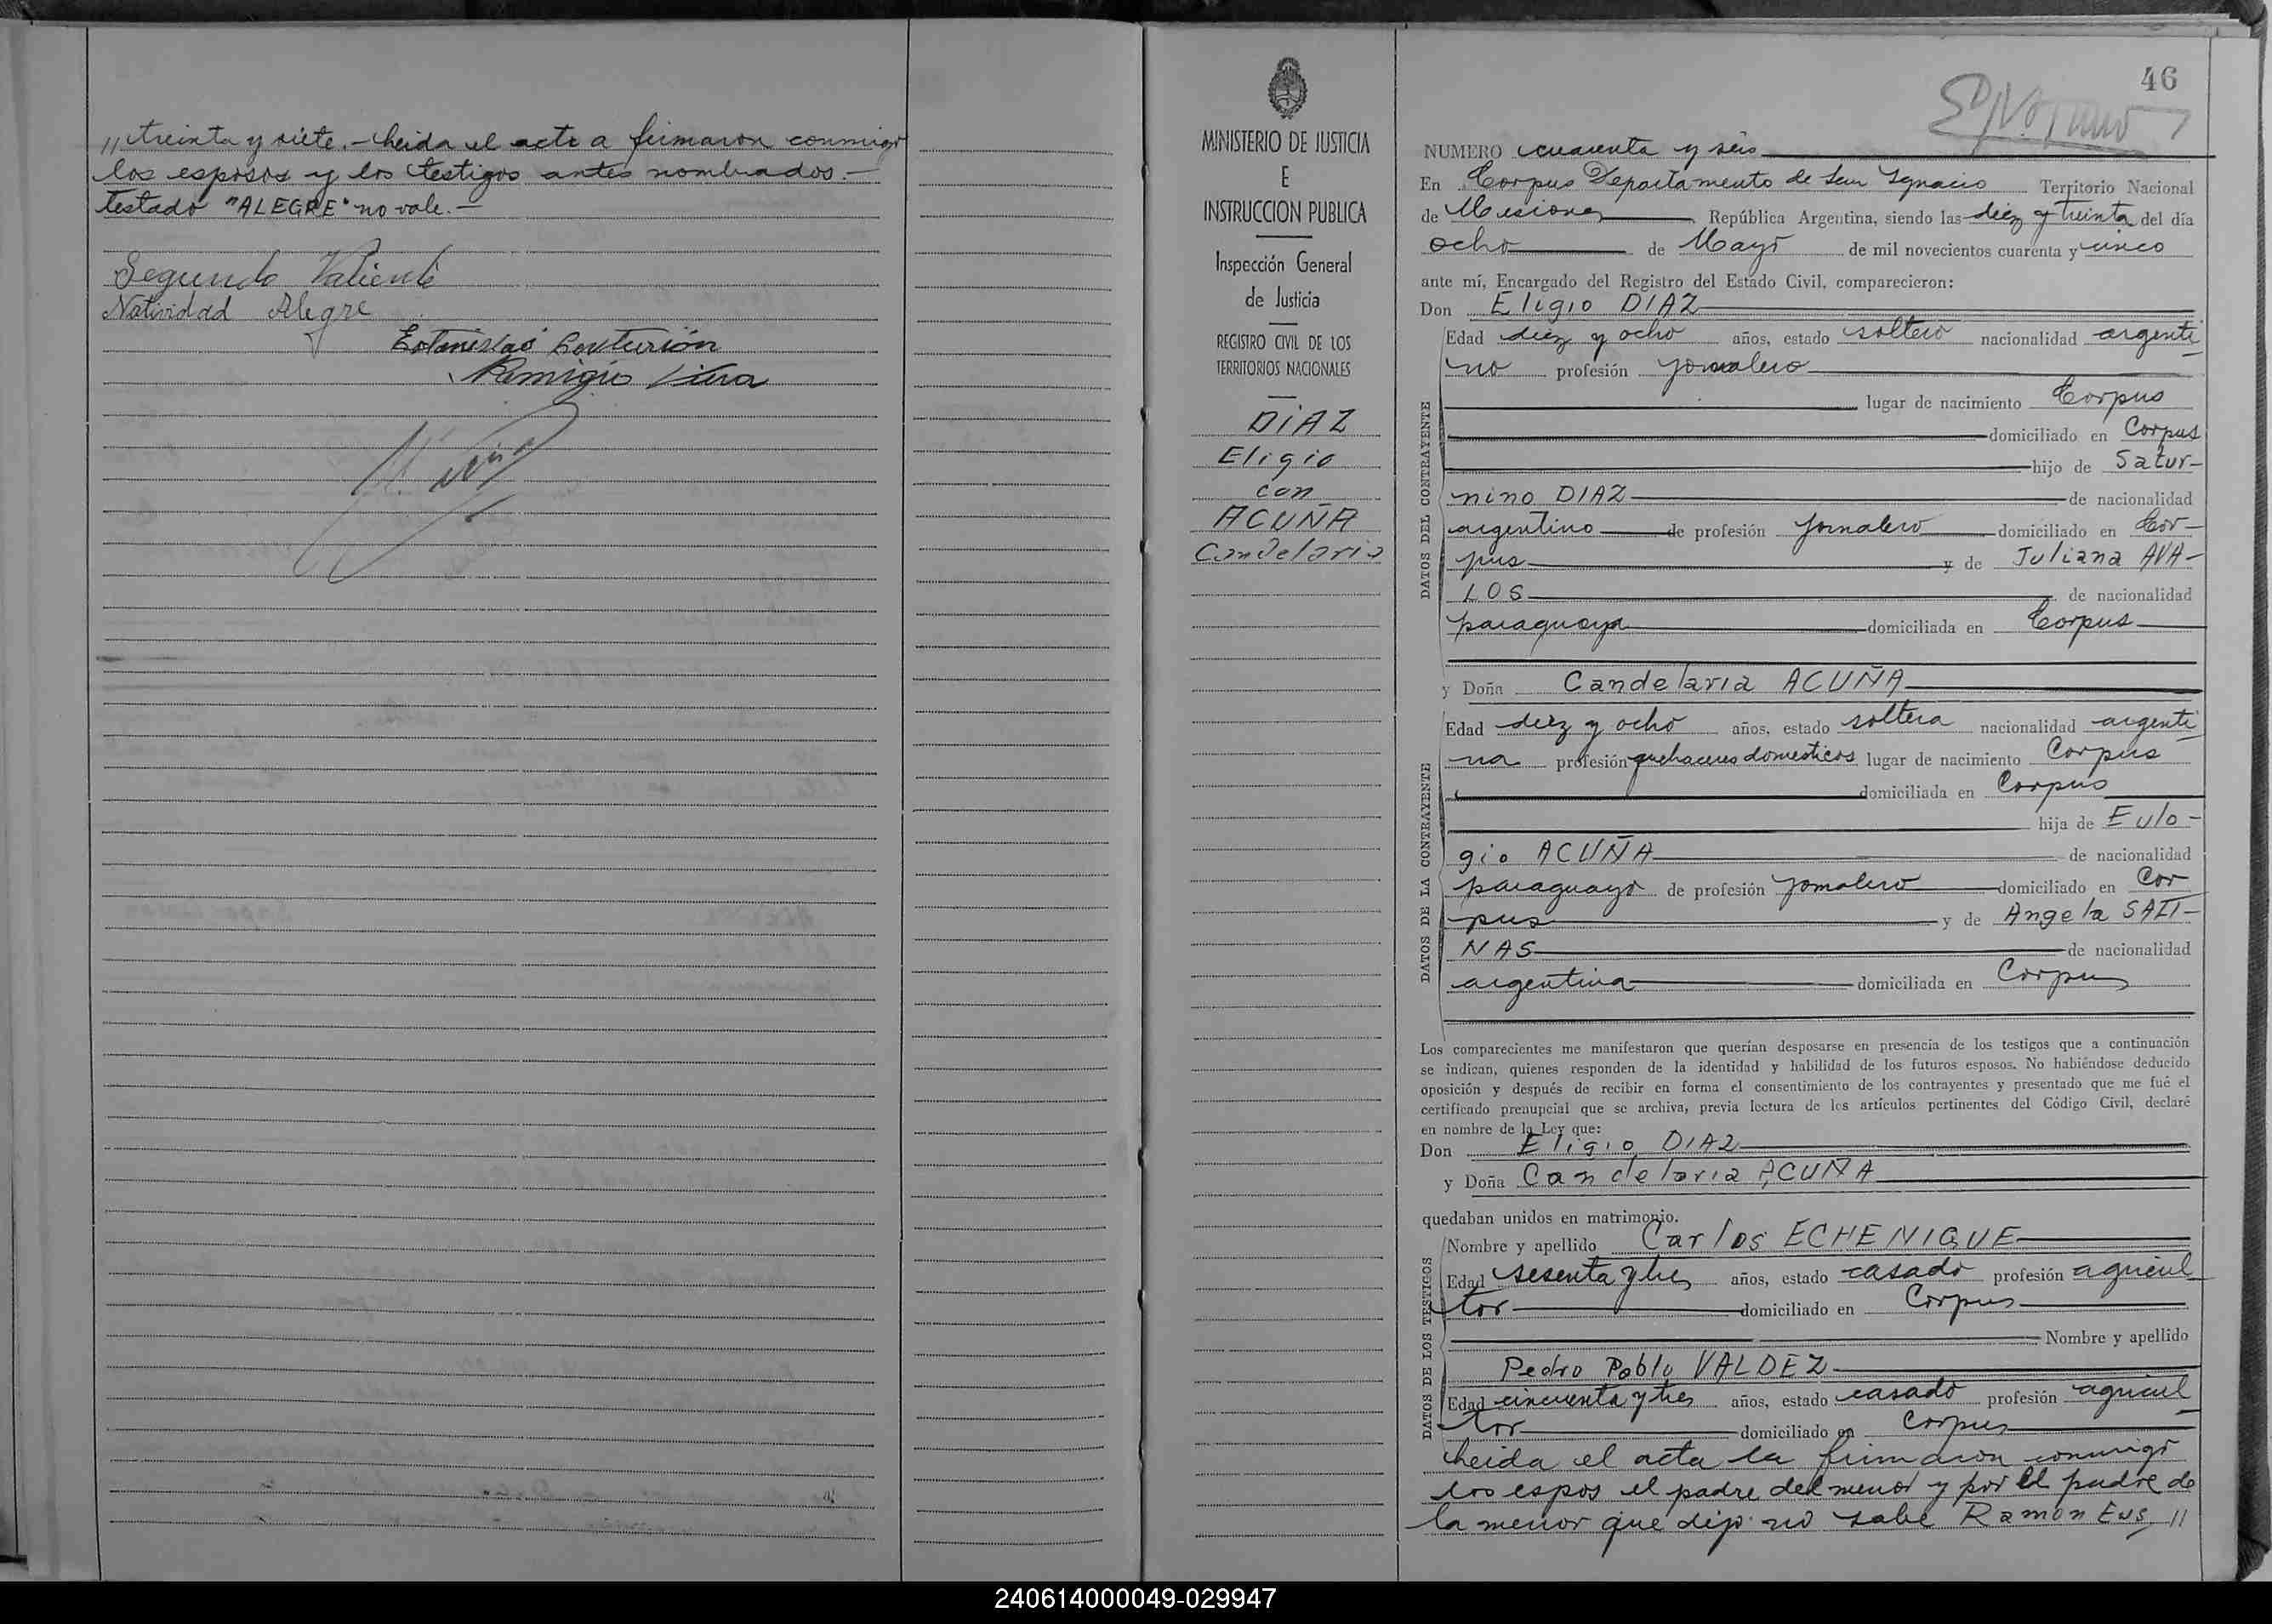 // treinta y siete.- Leida el acta a firmaron conmigo
los esposos y los testigos antes nombrados.-
testado "ALEGRE" no vale.-
Segundo Valiente
Natividad Alegre
Estanislao Centurión
Remigio
46
MINISTERIO DE JUSTICIA
E
INSTRUCCION PUBLICA
Inspección General
de Justicia
REGISTRO CIVIL DE LOS
TERRITORIOS NACIONALES
DIAZ
Eligio
con
ACUÑA
Candelaria
NUMERO cuarenta y seis
En Corpus Departamento de San Ignacio Territorio Nacional
de Misiones República Argentina, siendo las diez y treinta del día
ocho de Mayo de mil novecientos cuarenta y cinco
ante mí, Encargado del Registro del Estado Civil, comparecieron:
Don Eligio DIAZ
Edad diez y ocho años, estado soltero nacionalidad argenti
no profesión jornalero
lugar de nacimiento Corpus
domiciliado en Corpus
hijo de Satur-
nino DIAZ de nacionalidad
argentino de profesión jornalero domiciliado en Cor-
pus y de Juliana AVA-
LOS de nacionalidad
paraguaya domiciliada en Corpus
y Doña Candelaria ACUÑA
Edad diez y ocho años, estado soltera nacionalidad argenti
na profesión quehaceres domesticos lugar de nacimiento Corpus
domiciliada en Corpus
hija de Eulo-
gio ACUÑA de nacionalidad
paraguayo de profesión jornalero domiciliado en Cor
pus y de Angela
NAS de nacionalidad
argentina domiciliada en Corpus
DATOS DEL CONTRAYENTE
DATOS DE LA CONTRAYENTE
Los comparecientes me manifestaron que querían desposarse en presencia de los testigos que a continuación
se indican, quienes responden de la identidad y habilidad de los futuros esposos. No habiéndose deducido
oposición y después de recibir en forma el consentimiento de los contrayentes y presentado que me fué el
certificado prenupcial que se archiva, previa lectura de los artículos pertinentes del Código Civil, declaré
en nombre de la Ley que:
Don Eligio DIAZ
y Doña Candelaria ACUÑA
quedaban unidos en matrimonio.
Nombre y apellido Carlos ECHENIQUE
Edad sesenta y tres años, estado casado profesión agricul
tor domiciliado en Corpus
Nombre y apellido
Pedro Pablo VALDEZ
Edad cincuenta y tres años, estado casado profesión agricul
tor domiciliado en Corpus
DATOS DE LOS TESTIGOS
Leida el acta la firmaron conmigo
los espos el padre del menor y por el padre de
la menor que dijo no sabe Ramón Eus //
240614000049-029947